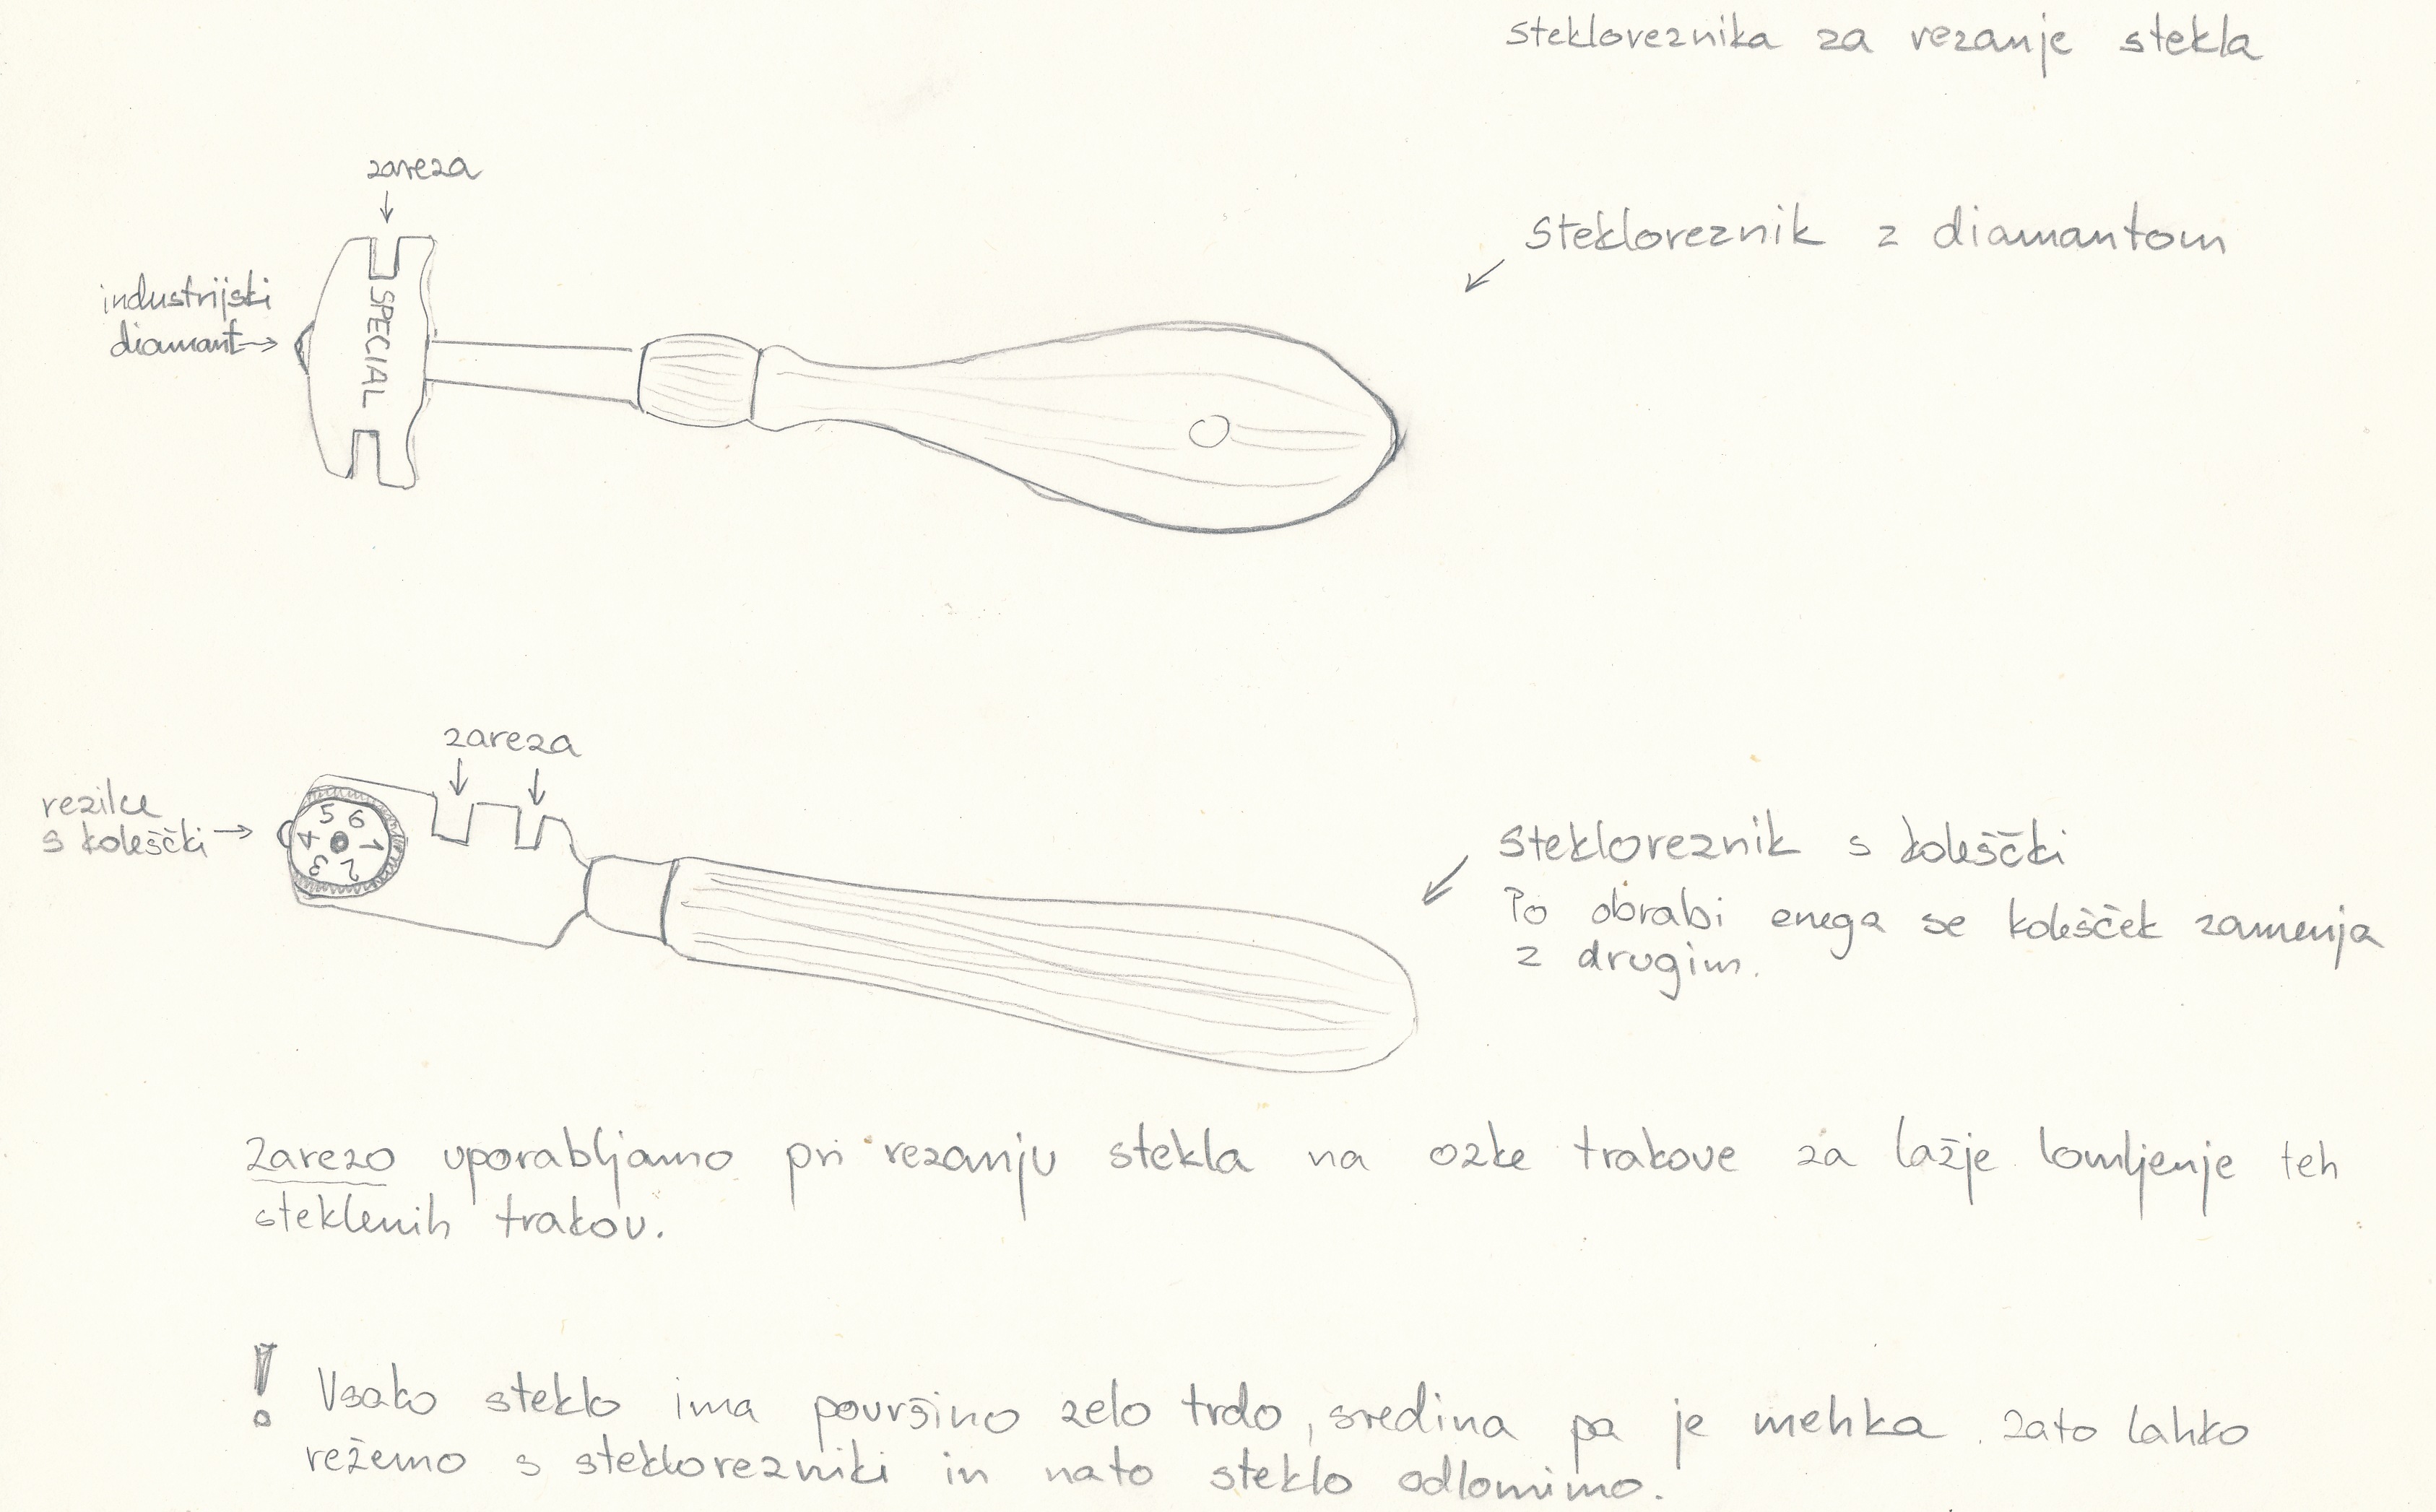 stekloreznika za rezanje stekla
zareza
stekloreznik z diamantom
industrijski
diamant
SPECIAL
zareza
rezilce
s koleščki
5 6
4 1
3 2
stekloreznik s koleščki
Po obrabi enega se kolešček zamenja
z drugim.
Zarezo uporabljamo pri rezanju stekla na ozke trakove za lažje lomljenje teh
steklenih trakov.
! Vsako steklo ima površino zelo trdo, sredina pa je mehka. Zato lahko
režemo s steklorezniki in nato steklo odlomimo.